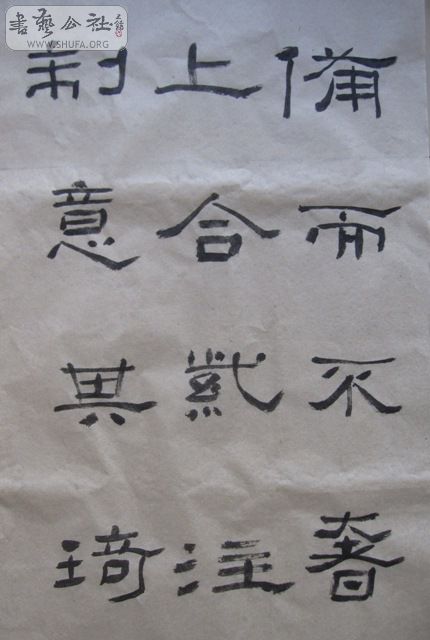 備而不奢
上合注
制意異琦
書藝公社
WWW.SHUFA.ORG